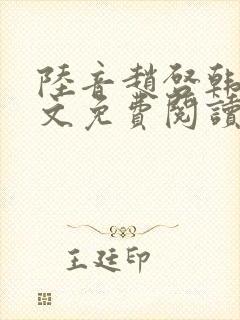 陸音趙啓韓
文免費閱讀
王廷印